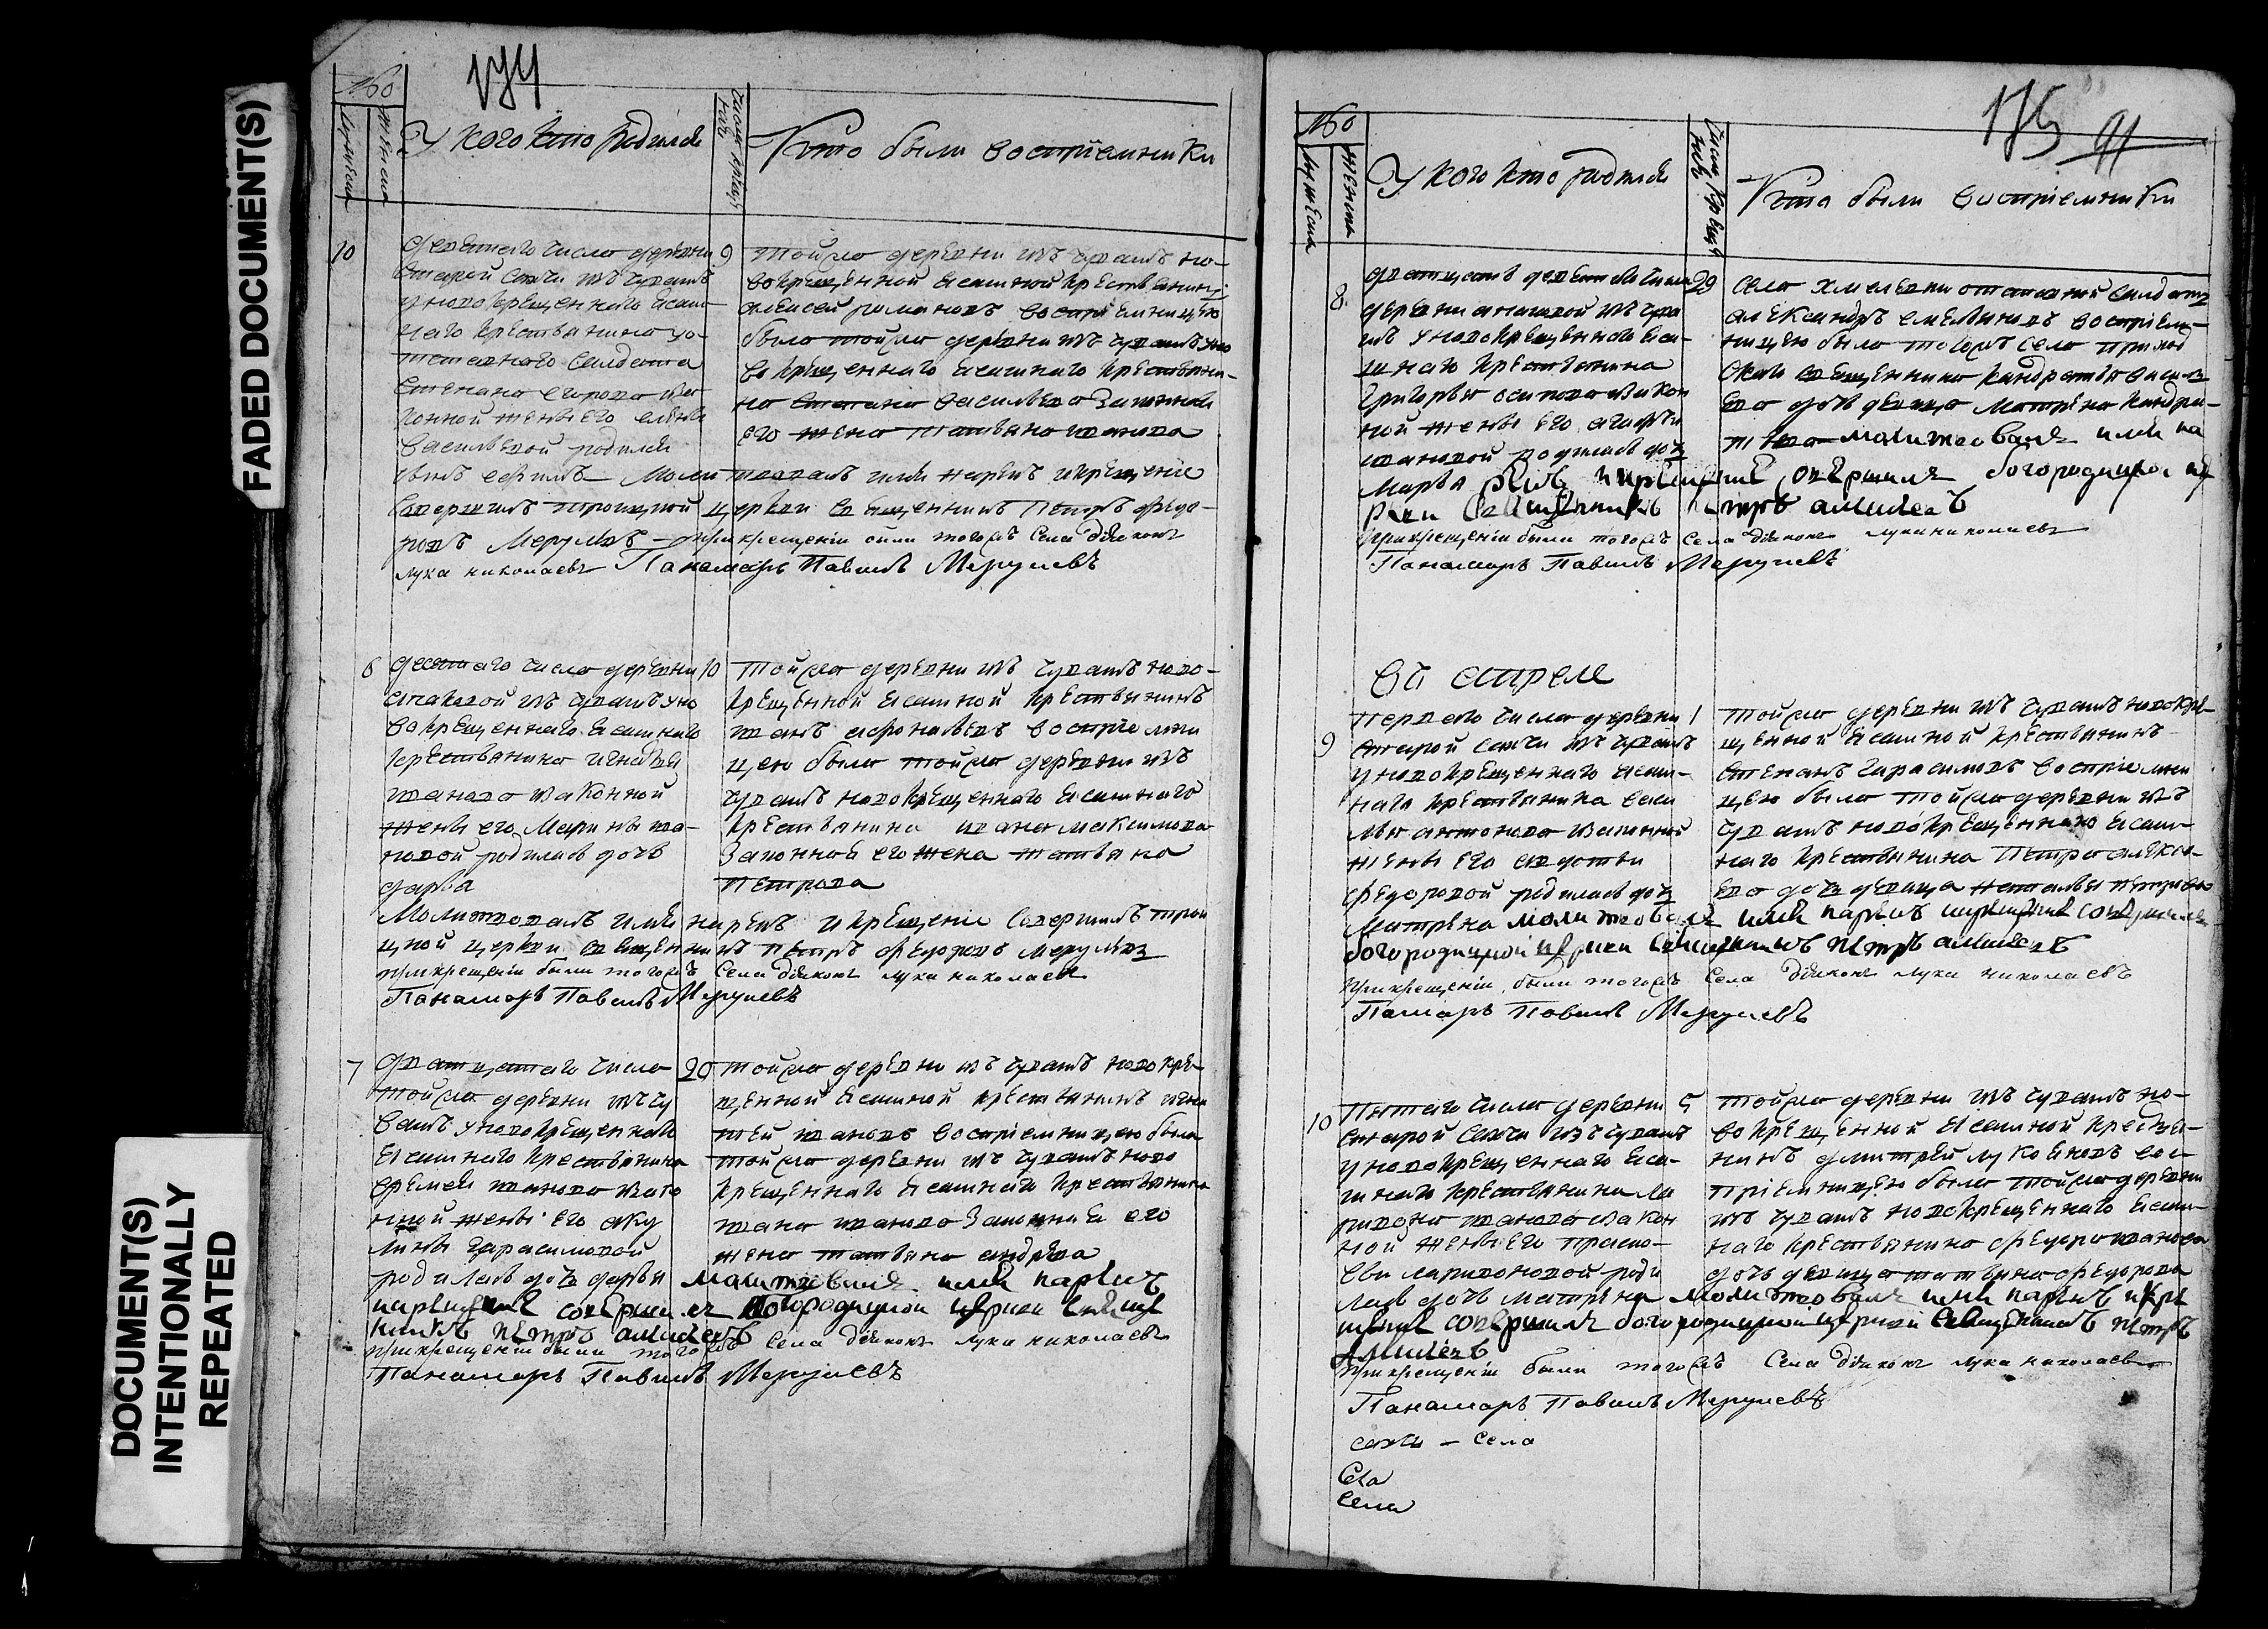 FADED DOCUMENT(S)
DOCUMENT(S)
INTENTIONALLY
REPEATED
174
№о
мужеска
женска
У кого кто родился
Кто были восприемники
10
девятаго числа деревни
старой сахчи изъ чувашъ
у новокрещеннаго ясаш-
наго крестьянина
отставнаго салдата
степана егорова
конной жены его елены
васильевой родился
сынъ
9
тойже деревни изъ чувашъ но-
вокрещенной ясашной крестьянинъ
алексей романовъ восприемницею
была тойже деревни изъ чувашъ у но
вокрещеннаго ясашнаго крестьяни-
на степана васильева законная
его жена татьяна иванова
молитвовалъ имя нарекъ и крещение
совершилъ троицкой церкви священникъ Петръ федо-
ровъ Мерулевъ при крещении были тогожъ села дьяконъ
лука николаевъ Панамарь Павелъ Мерулевъ
6
десятаго числа деревни
изъ чувашъ у но
вокрещеннаго ясашнаго
крестьянина игнатья
иванова законной
жены его Марины ива-
новой родилась дочь
дарья
10
тойже деревни изъ чувашъ ново-
крещенной ясашной крестьянинъ
иванъ афонасьевъ восприемни
цею была тойже деревни изъ
чувашъ новокрещеннаго ясашнаго
крестьянина ивана максимова
законная его жена татьяна
Петрова
Молитвовалъ имя нарекъ и крещение совершилъ трои
цкой церкви священникъ Петръ федоровъ мерулевъ
при крещении были тогожъ села дьяконъ лука николаевъ
Панамарь Павелъ Мерулевъ
7
дватцатаго числа
тойже деревни изъ чу
вашъ у новокрещеннаго
ясашнаго крестьянина
еремея иванова зако
нной жены его аку
лины герасимовой
родилась дочь дарья
20
тойже деревни изъ чувашъ новокре-
щенной ясашной крестьянинъ игна
тей ивановъ восприемницею была
тойже деревни изъ чувашъ ново
крещеннаго ясашнаго крестьянина
ивана иванова законная его
жена татьяна андреева
молитвовалъ имя нарекъ
и крещение совершилъ богородицкой церкви священ
никъ Петръ
при крещении были тогожъ села дьяконъ лука николаевъ
Панамарь Павелъ Мерулевъ
175
91
№о
мужеска
женска
У кого кто родился
Кто были восприемники
8
дватцать девятаго числа
деревни изъ чува
шъ у новокрещеннаго яса-
шнаго крестьянина
григорья осипова закон
ной жены его агафьи
ивановой родилась дочь
Марья
29
села хмелевки отставной салдатъ
александръ емельяновъ восприем-
ницею была тогожъ села приход
скаго священника кандратья василь
ева дочь девица Матрена кандра-
тьева молитвовалъ имя на
рекъ и крещение совершилъ богородицкой це
ркви священникъ Петръ
при крещении были тогожъ села дьяконъ лука николаевъ
Панамарь Павелъ Мерулевъ
въ апреле
9
перваго числа деревни
старой сахчи изъ чувашъ
у новокрещеннаго ясаш-
наго крестьянина васи
лья антонова законной
жены его авдотьи
федоровой родилась дочь
Матрена
1
тойже деревни изъ чувашъ новокре-
щенной ясашной крестьянинъ
степанъ гарасимовъ восприемни
цею была тойже деревни изъ
чувашъ новокрещеннаго ясаш-
наго крестьянина Петра алексе-
ева дочь девица наталья петрова
молитвовалъ имя нарекъ и крещение совершилъ
богородицкой церкви священникъ Петръ
при крещении были тогожъ села дьяконъ лука николаевъ
Памарь Павелъ Мерулевъ
10
Пятаго числа деревни
старой сахчи изъ чувашъ
у новокрещеннаго яса-
шнаго крестьянина ла
риона иванова закон
ной жены его праско-
вьи ларионовой роди
лась дочь матрена
5
тойже деревни изъ чувашъ но-
вокрещенной ясашной крестья-
нинъ дмитрей лукояновъ вос-
приемницею была тойже деревни
изъ чувашъ новокрещеннаго ясаш-
наго крестьянина федора иванова
дочь девица татьяна федорова
молитвовалъ имя нарекъ и кре
щение совершилъ богородицкой церкви священникъ Петръ
при крещении были тогожъ села дьяконъ лука николаевъ
Панамарь Павелъ Мерулевъ
сахчи - села
села
села